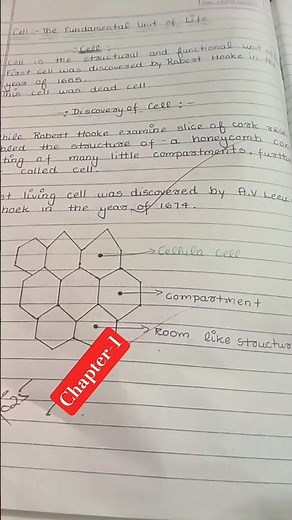 Cell :- The Fundamental Unit of Life
:Cell:
Cell is the structural and functional unit
First cell was discovered by Robert Hooke in
year of 1665.
This cell was dead cell.
:- Discovery of Cell :-
while Robert Hooke examine slice of cork
the structure of a honeycomb
ting of many little compartments.
called cell.
st living cell was discovered by A.V Leeu
hoek in the year of 1674.
Cellula cell
Compartment
Room like structur
Chapter 1